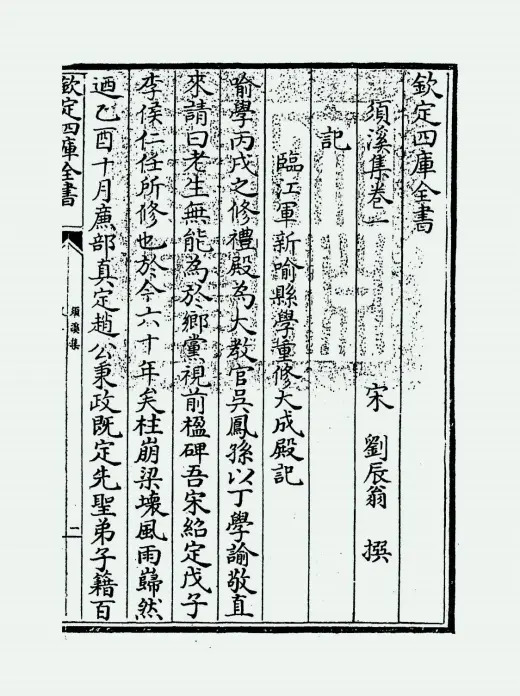 欽定四庫全書
須溪集卷一
宋 劉辰翁 撰
記
臨江軍新喻縣學重修大成殿記
喻學丙戌之修禮殿為大教官吳鳳孫以丁學諭敬直
來請曰老生無能為於鄉黨視前楹碑吾宋紹定戊子
李侯仁任所修也於今六十年矣柱崩梁壞風雨巋然
迺乙酉十月廉部真定趙公秉政既定先聖弟子籍百
欽定四庫全書
須溪集
一